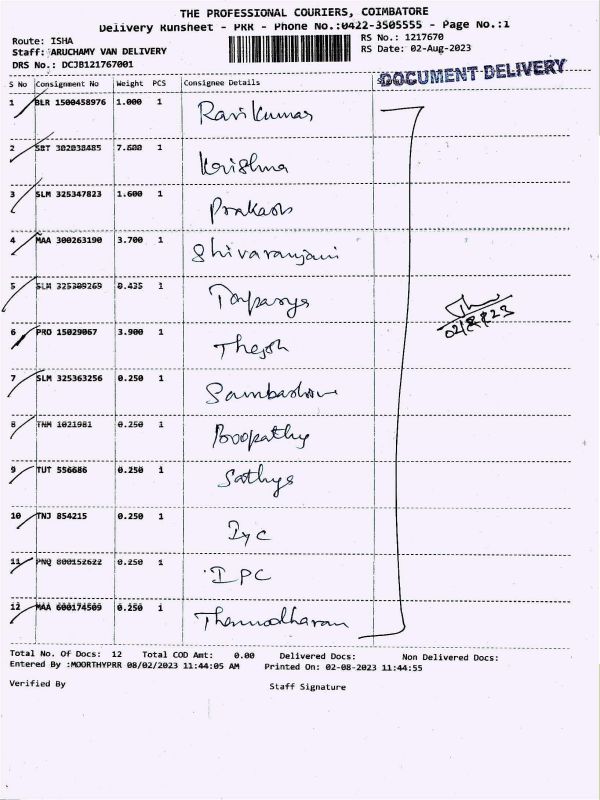 THE PROFESSIONAL COURIERS, COIMBATORE
Delivery Runsheet - PRR - Phone No.:0422-3505555 - Page No.:1
Route: ISHA
RS No.: 1217670
Staff: ARUCHAMY VAN DELIVERY
RS Date: 02-Aug-2023
DRS No.: DCJB121767001
DOCUMENT DELIVERY
S No Consignment No Weight PCS Consignee Details
1 BLR 1500458976 1.000 1 Ravikumar
2 SBT 302038485 7.600 1 Krishna
3 SLM 325347823 1.600 1 Prakash
4 MAA 300263190 3.700 1 Shivaranjani
5 SLM 325309269 0.435 1
02/8/23
6 PRO 15029067 3.900 1 Thejosh
7 SLM 325363256 0.250 1
8 TNM 1021981 0.250 1 Boopathy
9 TUT 556686 0.250 1 Sathya
10 TNJ 854215 0.250 1 Iyc
11 PNQ 800152622 0.250 1 IPC
12 MAA 600174509 0.250 1 Thamodharan
Total No. Of Docs: 12 Total COD Amt: 0.00 Delivered Docs: Non Delivered Docs:
Entered By :MOORTHYPRR 08/02/2023 11:44:05 AM Printed On: 02-08-2023 11:44:55
Verified By Staff Signature